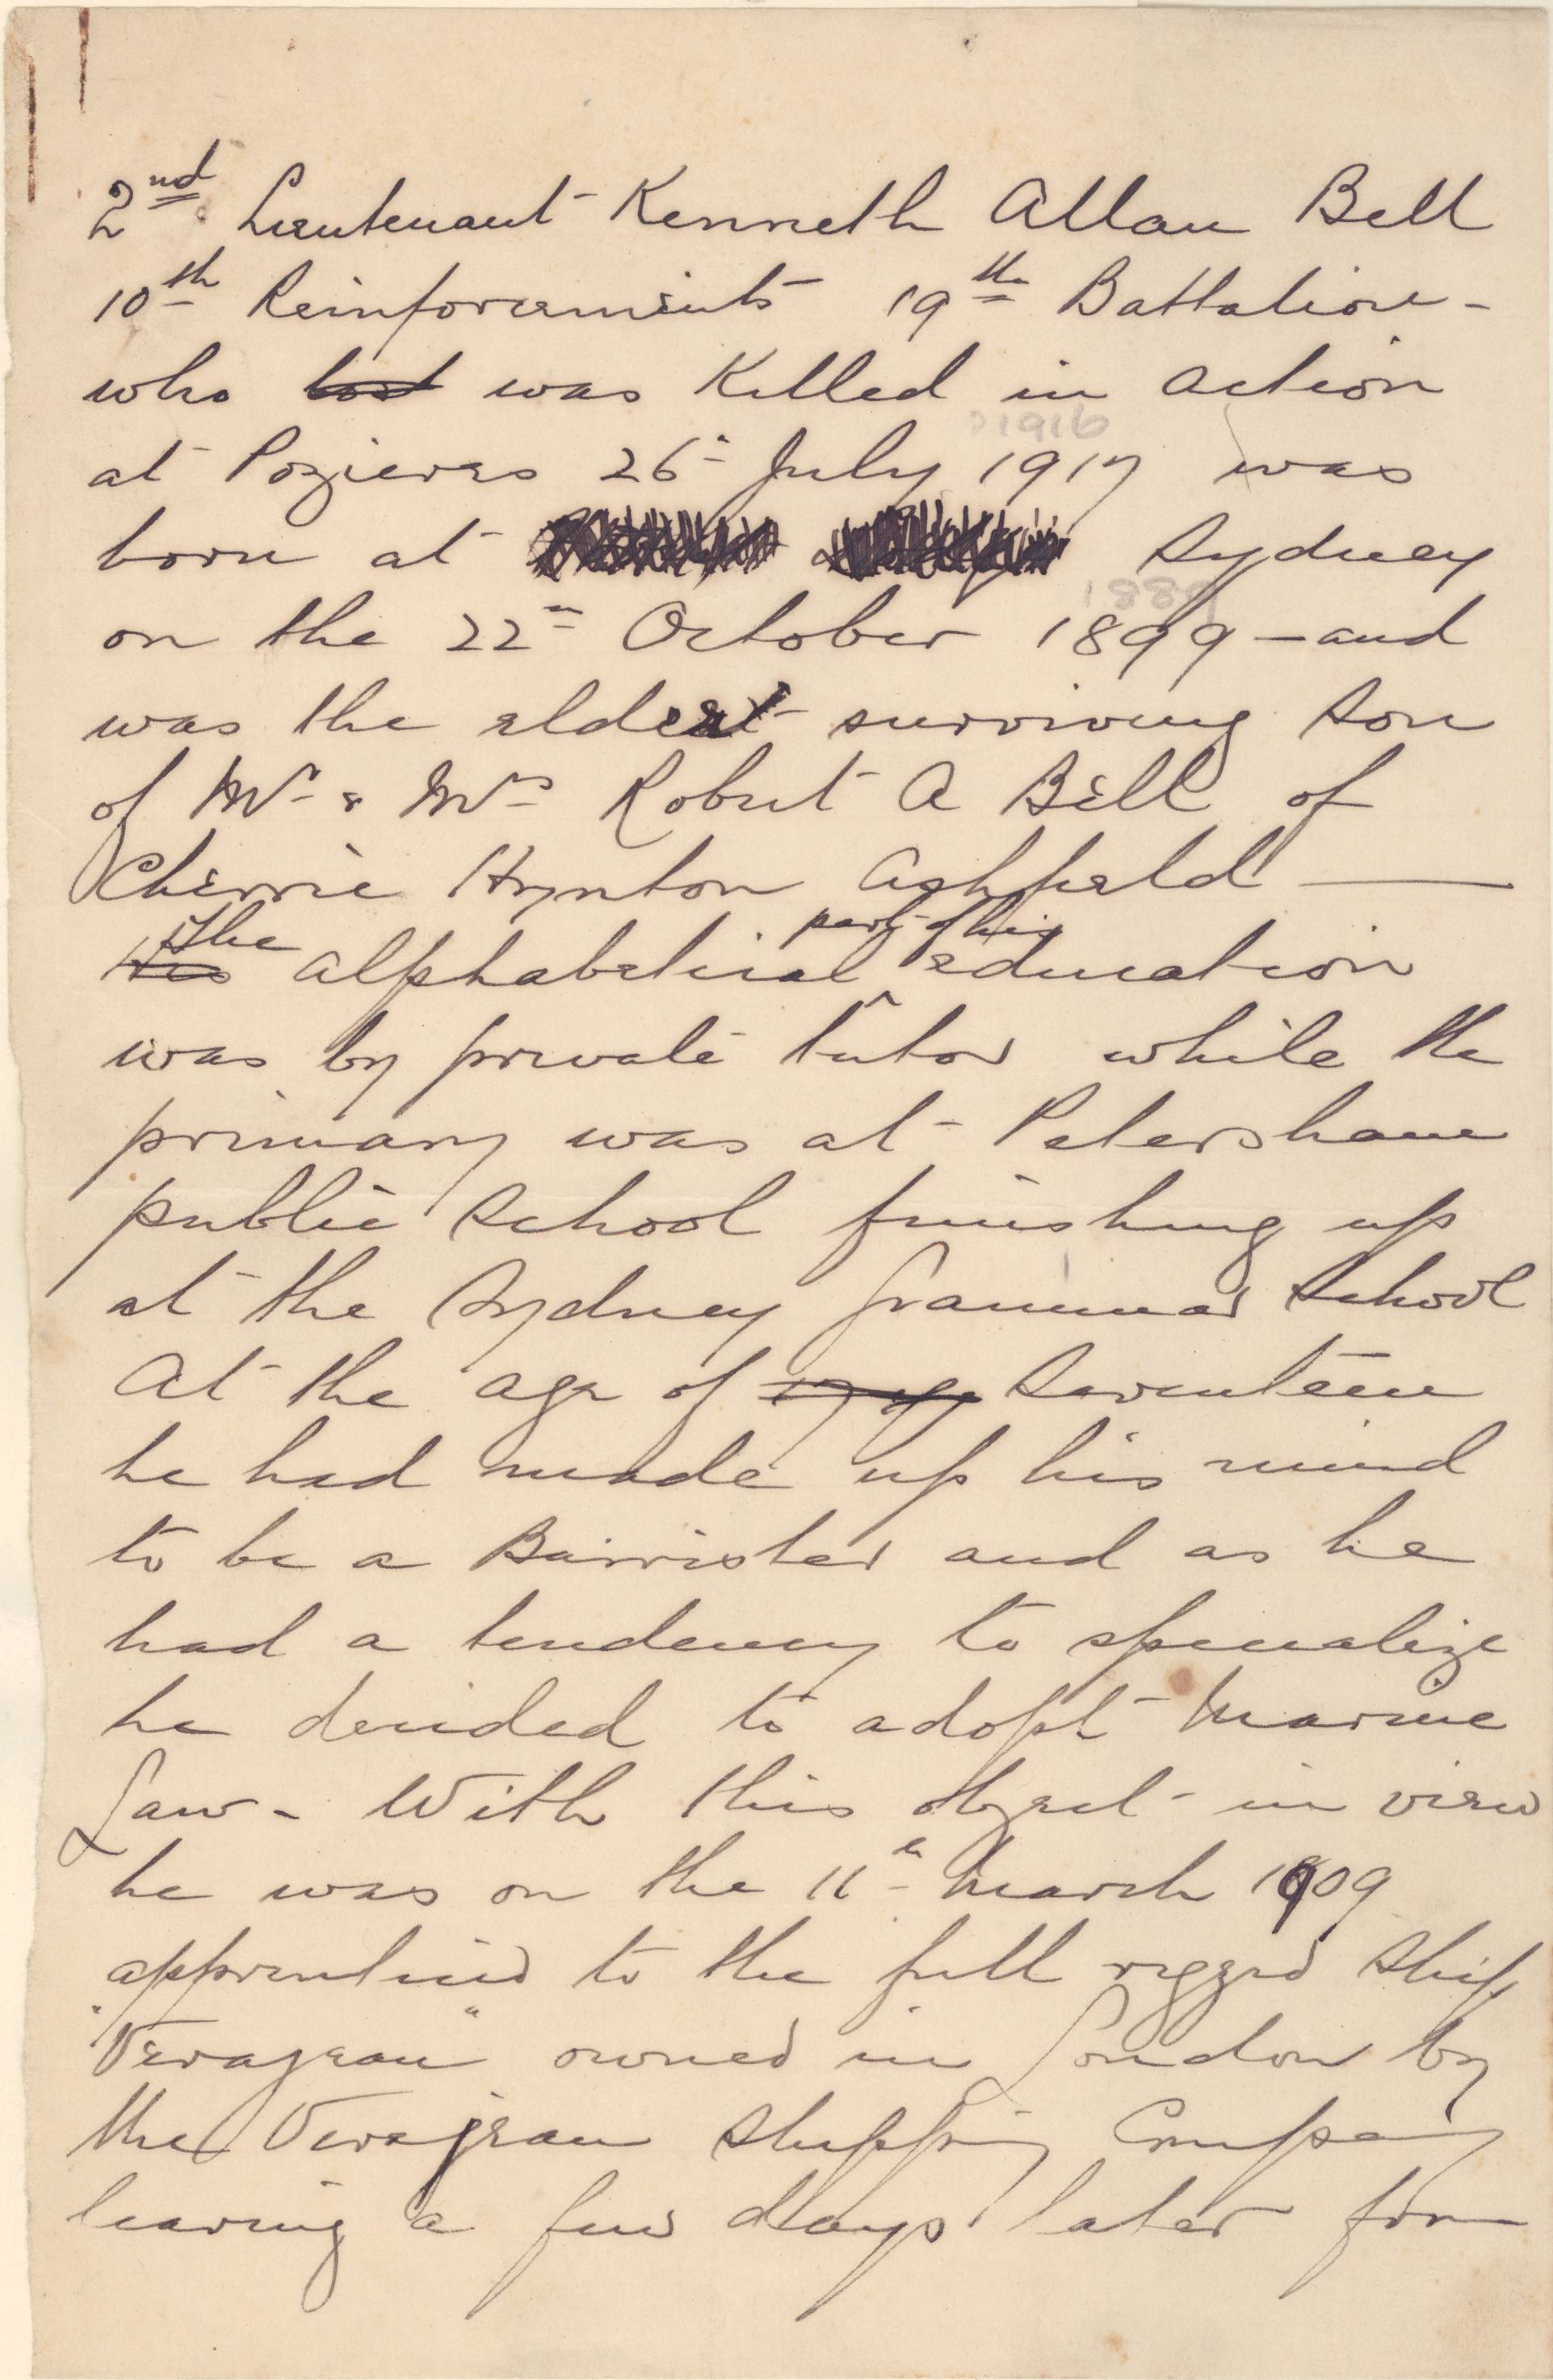 2nd Lieutenant Kenneth Allan Bell
10th Reinforcements 19th Battalion -
who lost was Killed in action
1916
at Pozieres 26th July 1917 was
born at Sydney
1889
on the 22nd October 1899 - and
was the eldest surviving son
of Mr & Mrs Robert A Bell of
Cherrie Hynton Ashfield —
The part of his
His alphabetical ^ education
was by private tutor while the
primary was at Petersham
public School finishing up
at the Sydney Grammar School
At the age of 17 Seventeen
he had made up his mind
to be a Barrister and as he
had a tendency to specialize
he decided to adopt Marine
Law - With this object in view
he was on the 11th March 1909
apprenticed to the full rigged Ship
"Verajean" owned in London by
the Verajean Shipping Company
leaving a few days later from